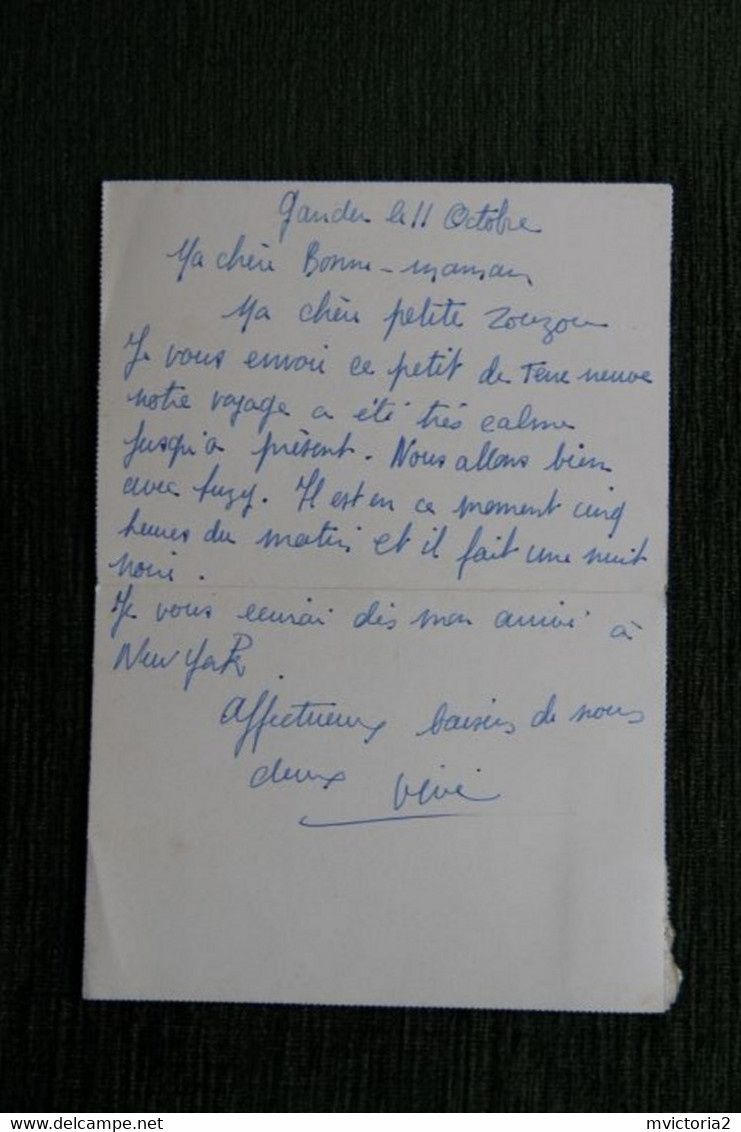 Gander le 11 Octobre
Ma chère Bonne-maman
Ma chère petite Zouzou
Je vous envoi ce petit de Terre neuve
notre voyage a été très calme
jusqu'a présent. Nous allons bien
avec Suzy. Il est en ce moment cinq
heures du matin et il fait une nuit
noire.
Je vous écrirai dès mon arrivé à
New York
Affectueux baisers de nous
deux Vévé
www.delcampe.net
mvictoria2